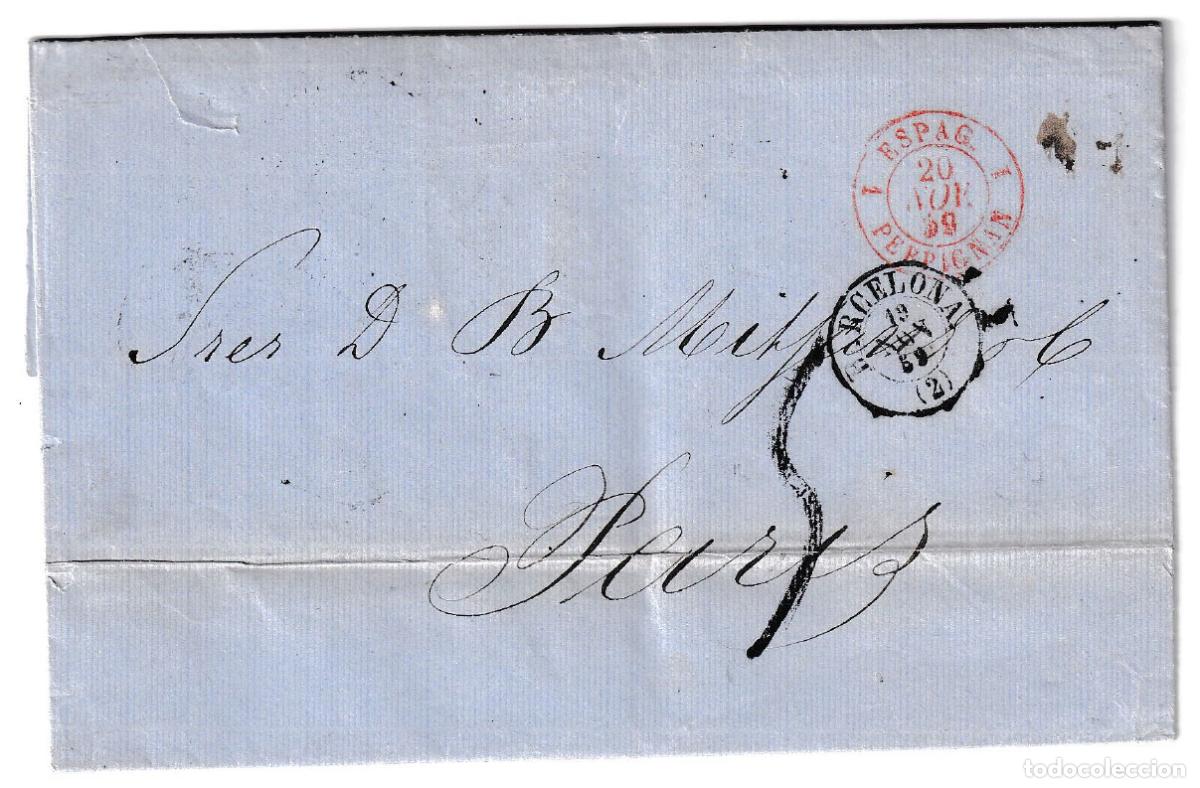 1 ESPAG. 1
20
NOV.
59
PERPIGNAN
BARCELONA
19
59
(2)
Sres D B &C
Paris
todocoleccion